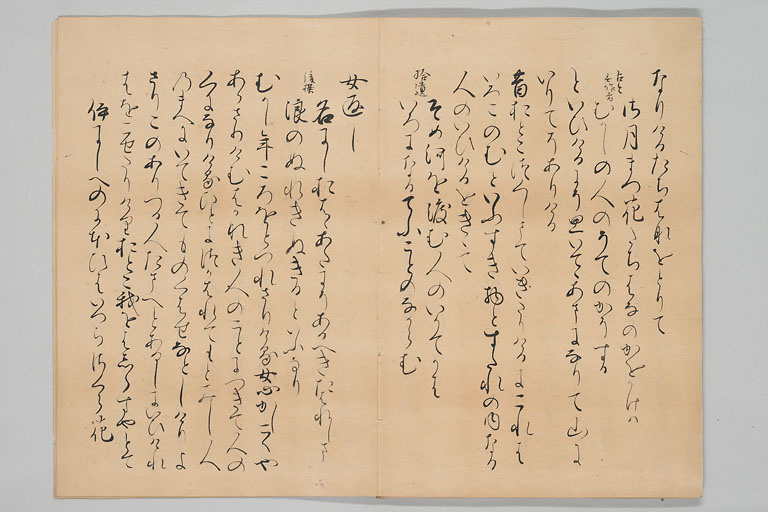 なりけるたちはなをとりて
さ月まつ花たちはなのかをかけは
むかしの人のそてのかそする
といひけるにそ思いてゝあまになりて山に
いりてそありける
昔おとこつくしまていきたりけるにこれは
いろこのむといふすき物とすたれの内なる
人のいひけるをきゝて
拾遺
そめ河を渡む人のいかてかは
いろになるてふことのなからむ
女返し
名にしおはゝあたにそあるへきたはれしま
後撰
浪のぬれきぬきるといふなり
むかし年ころをとつれさりける女心かしこくや
あらさりけむはかなき人のことにつきて人の
くになりける人につかはれてもと見し人
のまへにいてきてものくはせなとしけりよ
さりこのありつる人たまへとあるしにいひけれ
はをこせたりけりおとこ我をはしらすやとて
伊にしへのにほひはいつらさくら花